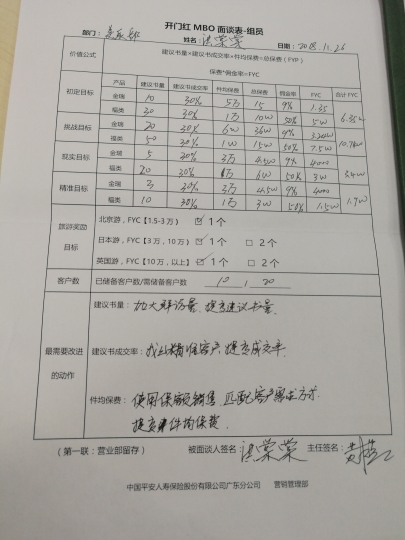 开门红 MBO 面谈表-组员
部门： 姓名：洪棠棠 日期：2018.11.26
价值公式 建议书量×建议书成交率×件均保费=总保费（FYP）
保费*佣金率=FYC
产品 建议书量 建议书成交率 件均保费 总保费 佣金率 FYC 合计 FYC
初定目标 金瑞 10 30% 5万 15 9% 1.35 6.35w
福类 20 30% 1万 10w 50% 5w
挑战目标 金瑞 20 30% 6w 36w 9% 3.24w 10.74w
福类 50 30% 1w 15w 50% 7.5w
现实目标 金瑞 5 30% 3万 4.5w 9% 4000 3.4w
福类 20 30% 1万 6w 50% 3w
精准目标 金瑞 3 30% 4.5w 9% 4000 1.9w
福类 10 30% 1万 3w 50% 1.5w
旅游奖励目标 北京游，FYC【1.5-3 万） ☑ 1 个
日本游，FYC【3 万，10 万） ☑ 1 个 □ 2 个
英国游，FYC【10 万，以上】 ☑ 1 个 □ 2 个
客户数 已储备客户数/需储备客户数 10 / 20
最需要改进的动作
建议书量：加大拜访量，提高建议书量
建议书成交率：找到精准客户，提高成交率.
件均保费：使用保额销售，匹配客户需求方式.
提高件均保费.
（第一联：营业部留存） 被面谈人签名：洪棠棠 主任签名：
中国平安人寿保险股份有限公司广东分公司 营销管理部